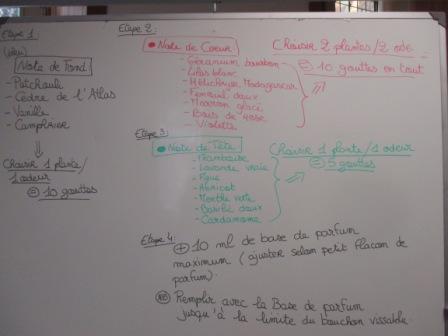 Etape 1
Note de Fond
- Patchouli
- Cèdre de l'Atlas
- Vanille
- Camphrier
Choisir 1 plante/
1 odeur
= 10 gouttes
Etape 2:
Note de Coeur
- Géranium bourbon
- Lilas blanc
- Hélichryse Madagascar
- Fenouil doux
- Marron glacé
- Bois de rose
- Violette
Choisir 2 plantes/2 ode
= 10 gouttes en tout
Etape 3:
Note de Tête
- Framboise
- Lavande vraie
- Figue
- Abricot
- Menthe verte
- Basilic doux
- Cardamome
Choisir 1 plante/1 odeur
= 5 gouttes
Etape 4:
+ 10 ml de base de parfum
maximum (ajuster selon petit flacon de
parfum).
Remplir avec la Base de parfum
jusqu'à la limite du bouchon vissable.